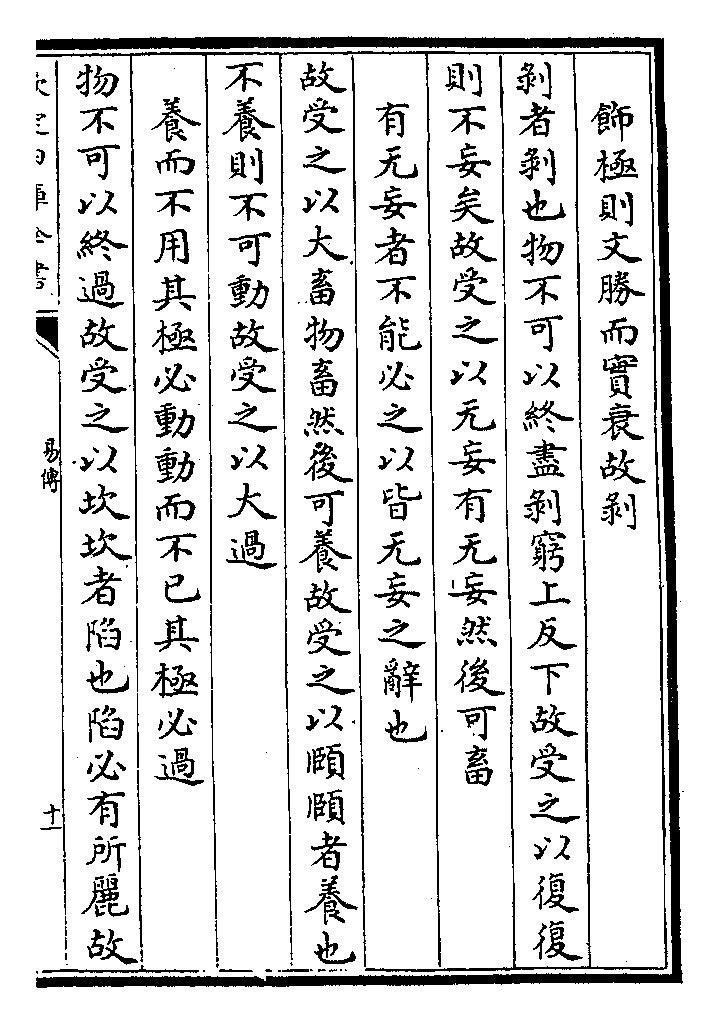 飾極則文勝而實衰故剥
剥者剥也物不可以終盡剥窮上反下故受之以復復
則不妄矣故受之以无妄有无妄然後可畜
有无妄者不能必之以皆无妄之辭也
故受之以大畜物畜然後可養故受之以頤頤者養也
不養則不可動故受之以大過
養而不用其極必動動而不已其極必過
物不可以終過故受之以坎坎者陷也陷必有所麗故
易傳
十一